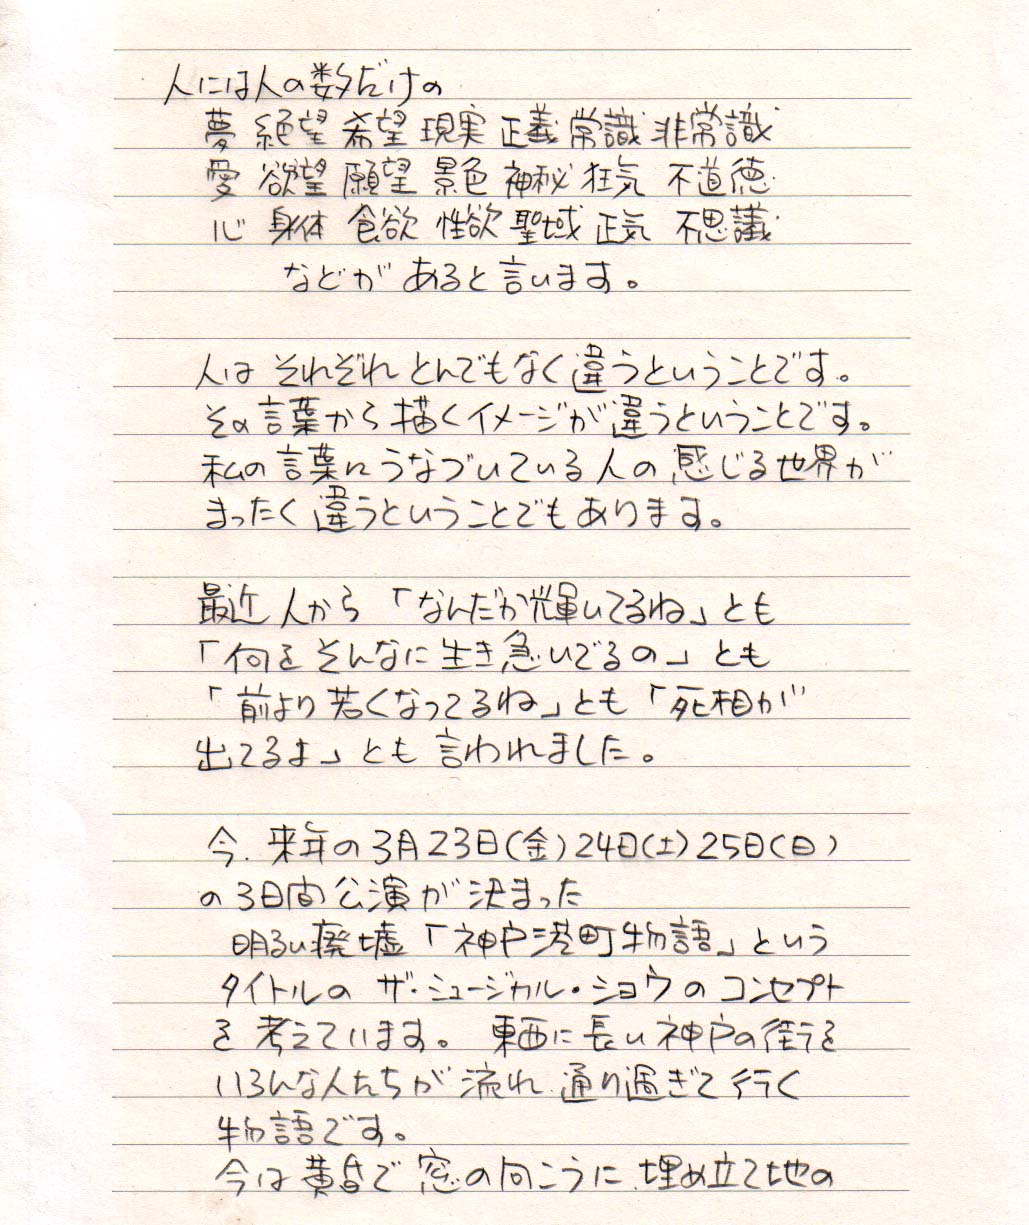 人には人の数だけの
夢 絶望 希望 現実 正義 常識 非常識
愛 欲望 願望 景色 神秘 狂気 不道徳
心 身体 食欲 性欲 聖域 正気 不思議
などが あると言います。
人は それぞれ とんでもなく違うということです。
その言葉から描くイメージが違うということです。
私の言葉にうなづいている人の感じる世界が
まったく違うということでもあります。
最近 人から 「なんだか輝いてるね」とも
「何をそんなに生き急いでるの」とも
「前より若くなってるね」とも「死相が
出てるよ」とも言われました。
今、来年の3月23日(金)24日(土)25日(日)
の3日間公演が決まった
明るい廃墟「神戸港町物語」という
タイトルの ザ・ミュージカル・ショウのコンセプト
を考えています。 東西に長い神戸の街を
いろんな人たちが流れ、通り過ぎて行く
物語です。
今は黄昏で 窓の向こうに、埋め立て地の